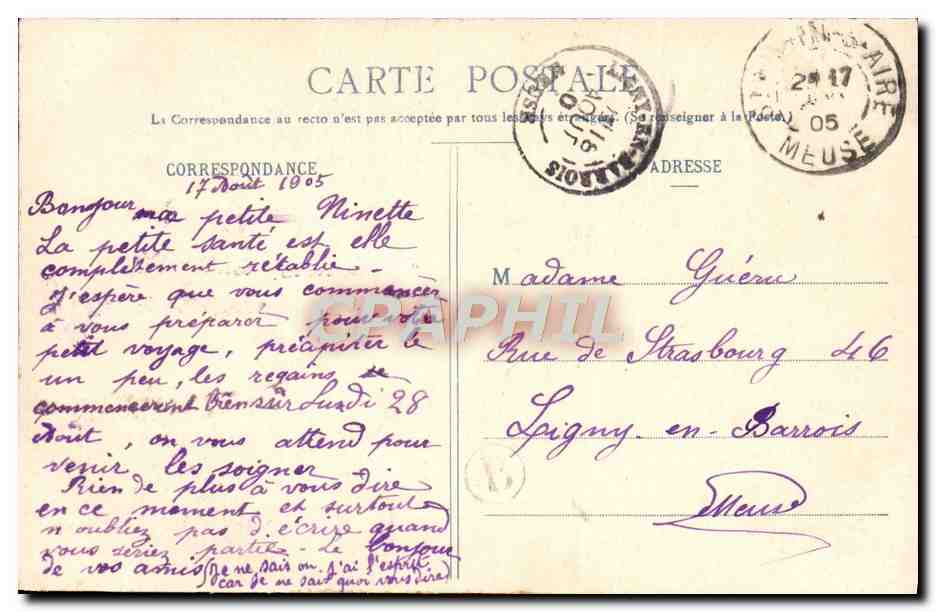 CARTE POSTALE
La Correspondance au recto n'est pas acceptée par tous les pays étrangers. (Se renseigner à la Poste.)
CORRESPONDANCE
17 Août 1905
Bonjour ma petite Ninette
La petite santé est elle
complètement rétablie -
J'espère que vous commencer
à vous préparer pour votre
petit voyage, précipiter le
un peu, les regains se
commenceront bien sur Lundi 28
Août, on vous attend pour
venir les soigner
Rien de plus à vous dire
en ce moment et surtout
n'oubliez pas d'écrire quand
vous seriez partie - Le bonjour
de vos amis (Je ne sais on J'ai l'esprit
car je ne sais quoi vous dire)
LIGNY-EN-BARROIS
MEUSE
05
MEUSE
ADRESSE
Madame Guérin
Rue de Strasbourg 46
Ligny-en-Barrois
Meuse
CPAPHIL